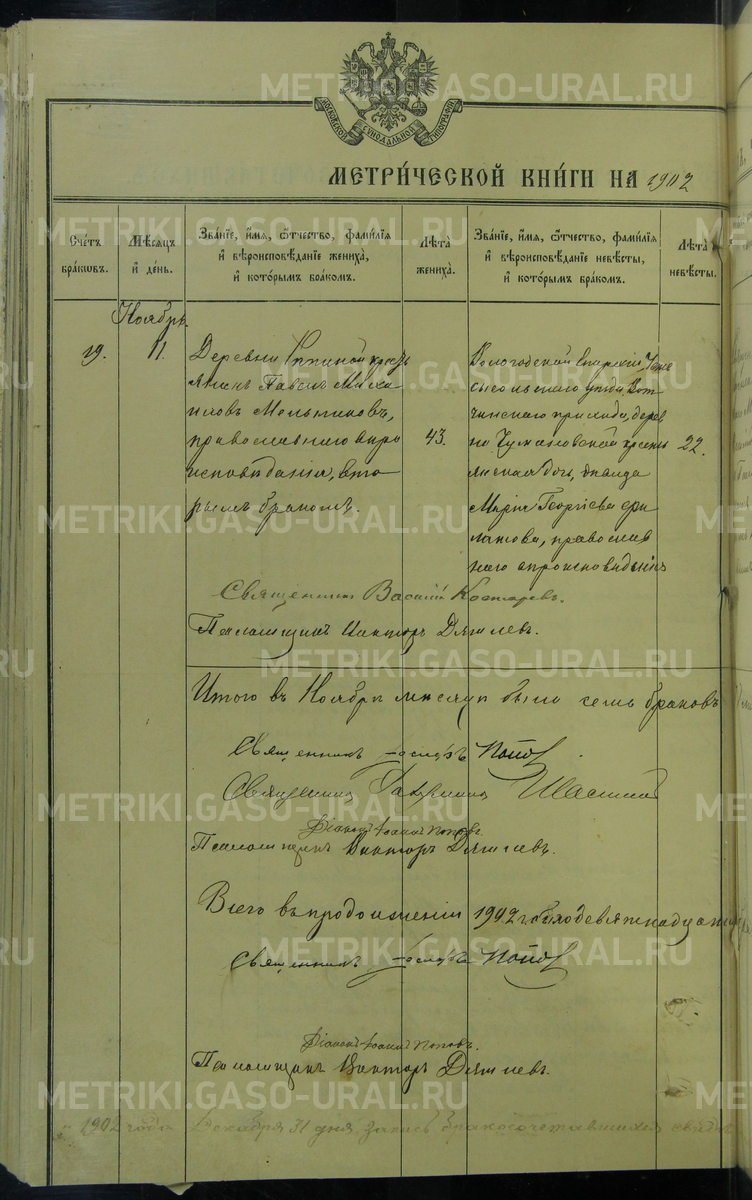 МОСКОВСКОЙ СѴНОДАЛЬНОЙ ТИПОГРАФІИ
МЕТРИ́ЧЕСКОЙ КНИ́ГИ НА 1902
Сче́тъ бра́кωвъ.
Мѣ́сѧцъ и҆ де́нь.
Зва́нїе, и҆́мѧ, ѻ҆́тчество, фамѝлїѧ и҆ вѣроисповѣ́данїе жениха̀, и҆ кото́рымъ бра́комъ.
Лѣ́та жениха̀.
Зва́нїе, и҆́мѧ, ѻ҆́тчество, фамѝлїѧ и҆ вѣроисповѣ́данїе невѣ́сты, и҆ кото́рымъ бра́комъ.
Лѣ́та невѣ́сты.
Ноябрь.
19.
11.
Деревни кресть
янинъ Павелъ Миха
иловъ Мельниковъ,
православнаго вѣро
исповѣданія, вто-
рымъ бракомъ.
43.
Вологодской Епархіи,
сысольскаго уѣзда, Вот
чинскаго прихода, дерев
ни крестья
нская дочь, дѣвица
Марія Георгіева Фи
латова, православ
наго вѣроисповѣданія
22.
Священникъ Василій Костаревъ.
Псаломщикъ Викторъ Дягилевъ.
Итого въ Ноябрѣ мѣсяцѣ было семь браковъ
Священникъ Іосифъ Поповъ
Священникъ Гавріилъ
Діаконъ Іоаннъ Поповъ.
Псаломщикъ Викторъ Дягилевъ.
Всего въ продолженіи 1902 г. было девятнадцать
Священникъ Іосифъ Поповъ
Діаконъ Іоаннъ Поповъ.
Псаломщикъ Викторъ Дягилевъ.
1902 года Декабря 31 дня запись бракосочетавшихся
METRIKI.GASO-URAL.RU